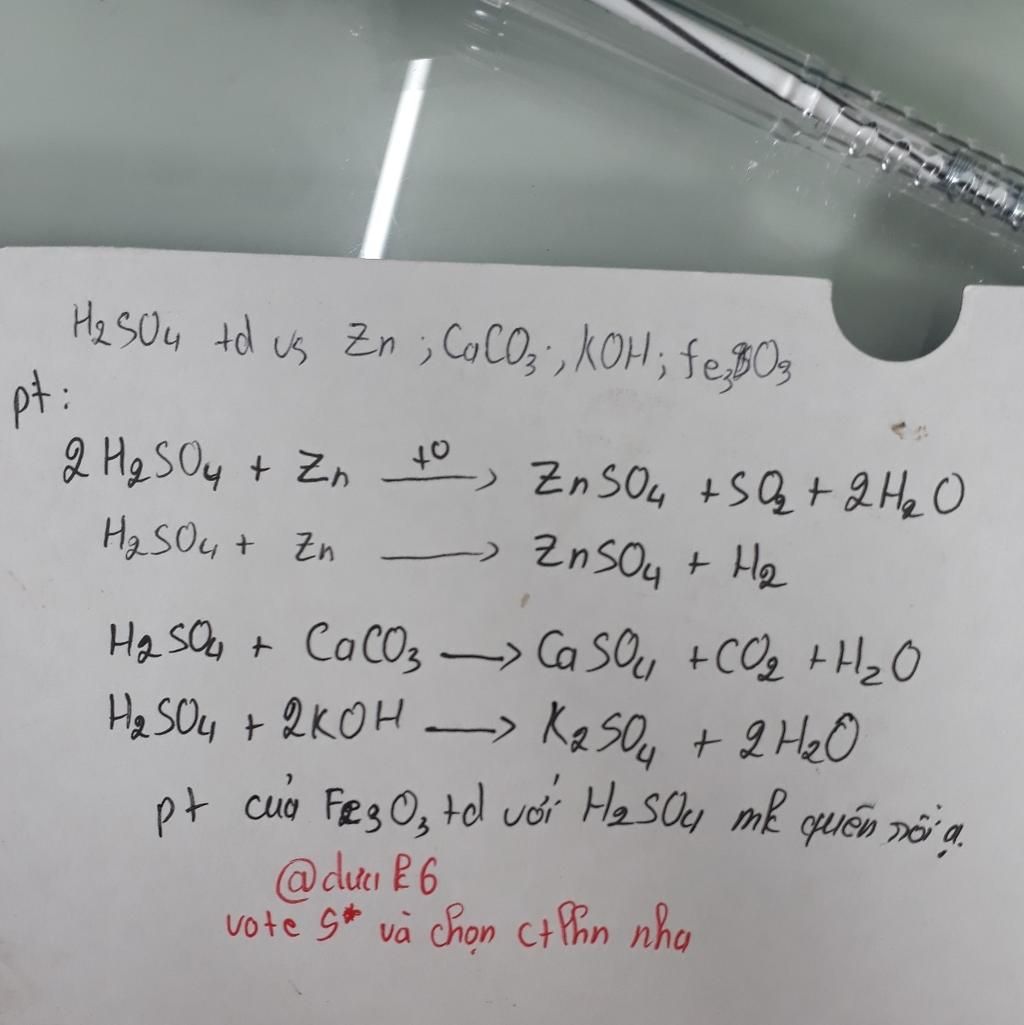 H2SO4 td vs Zn ; CaCO3 ; KOH ; Fe3O3
pt :
2H2SO4 + Zn t0→ ZnSO4 + SO2 + 2H2O
H2SO4 + Zn → ZnSO4 + H2
H2SO4 + CaCO3 → CaSO4 + CO2 + H2O
H2SO4 + 2KOH → K2SO4 + 2H2O
pt của Fe3O3 td với H2SO4 mk quên rồi ạ.
vote 5* và chọn ctlhn nha